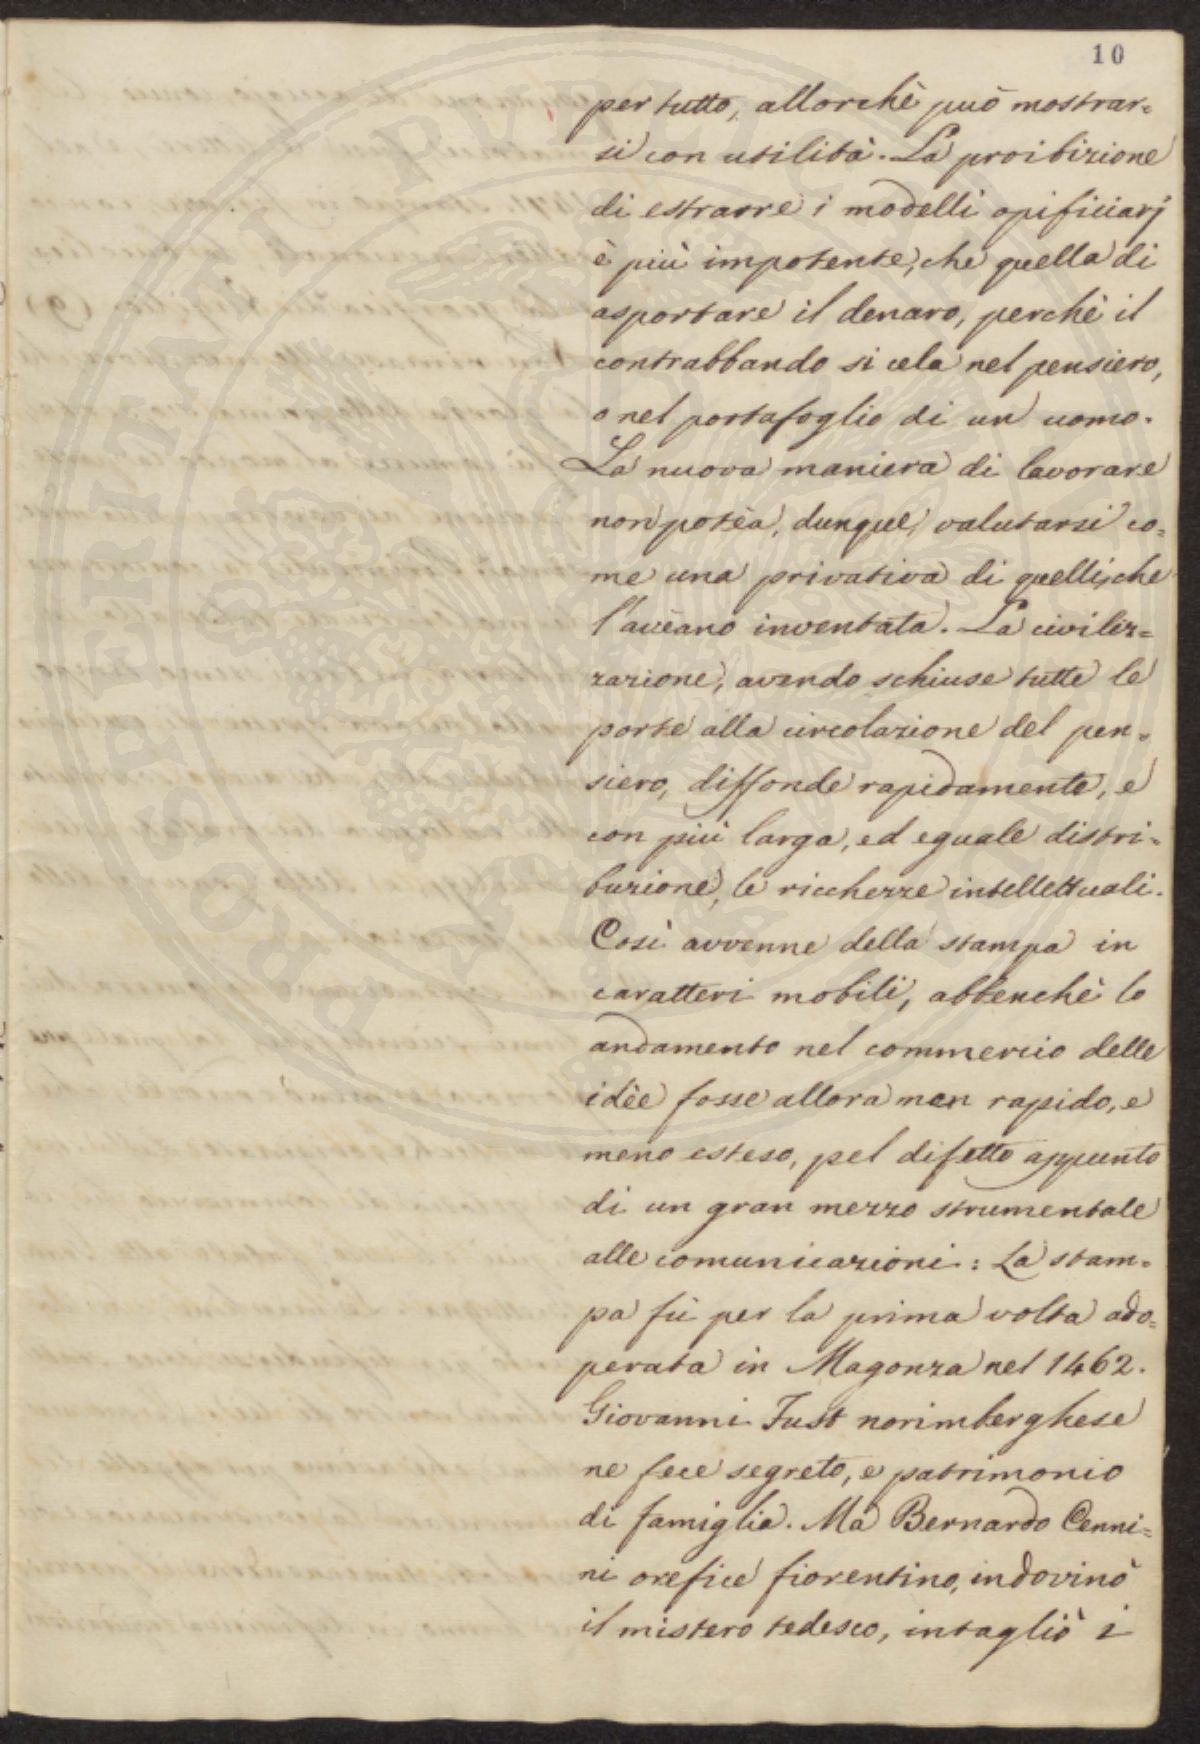 10
per tutto, allorchè può mostrar=
si con utilità. La proibizione
di estrarre i modelli opificiarj
è più impotente, che quella di
asportare il denaro, perchè il
contrabbando si cela nel pensiero,
o nel portafoglio di un uomo.
La nuova maniera di lavorare
non potèa, dunque, valutarsi co=
me una privativa di quelli, che
l'avèano inventata. La civiliz=
zazione, avendo schiuse tutte le
porte alla circolazione del pen=
siero, diffonde rapidamente, e
con più larga, ed eguale distri=
buzione, le ricchezze intellettuali.
Così avvenne della stampa in
caratteri mobili, abbenchè lo
andamento nel commercio delle
idèe fosse allora men rapido, e
meno esteso, pel difetto appunto
di un gran mezzo strumentale
alle comunicazioni: La stam=
pa fù per la prima volta ado=
perata in Magonza nel 1462.
Giovanni Fust norimberghese
ne fece segreto, e patrimonio
di famiglia. Ma Bernardo Cenni=
ni orefice fiorentino, indovinò
il mistero tedesco, intagliò i